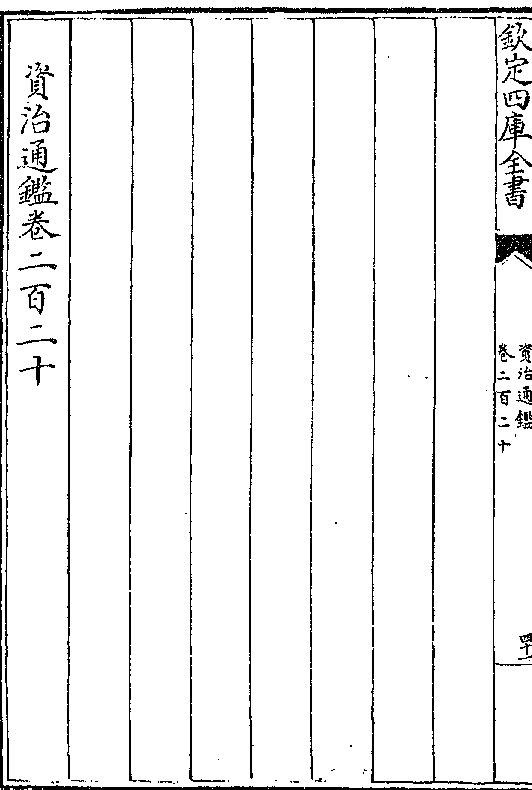 欽定四庫全書
資治通鑑
卷二百二十
資治通鑑卷二百二十